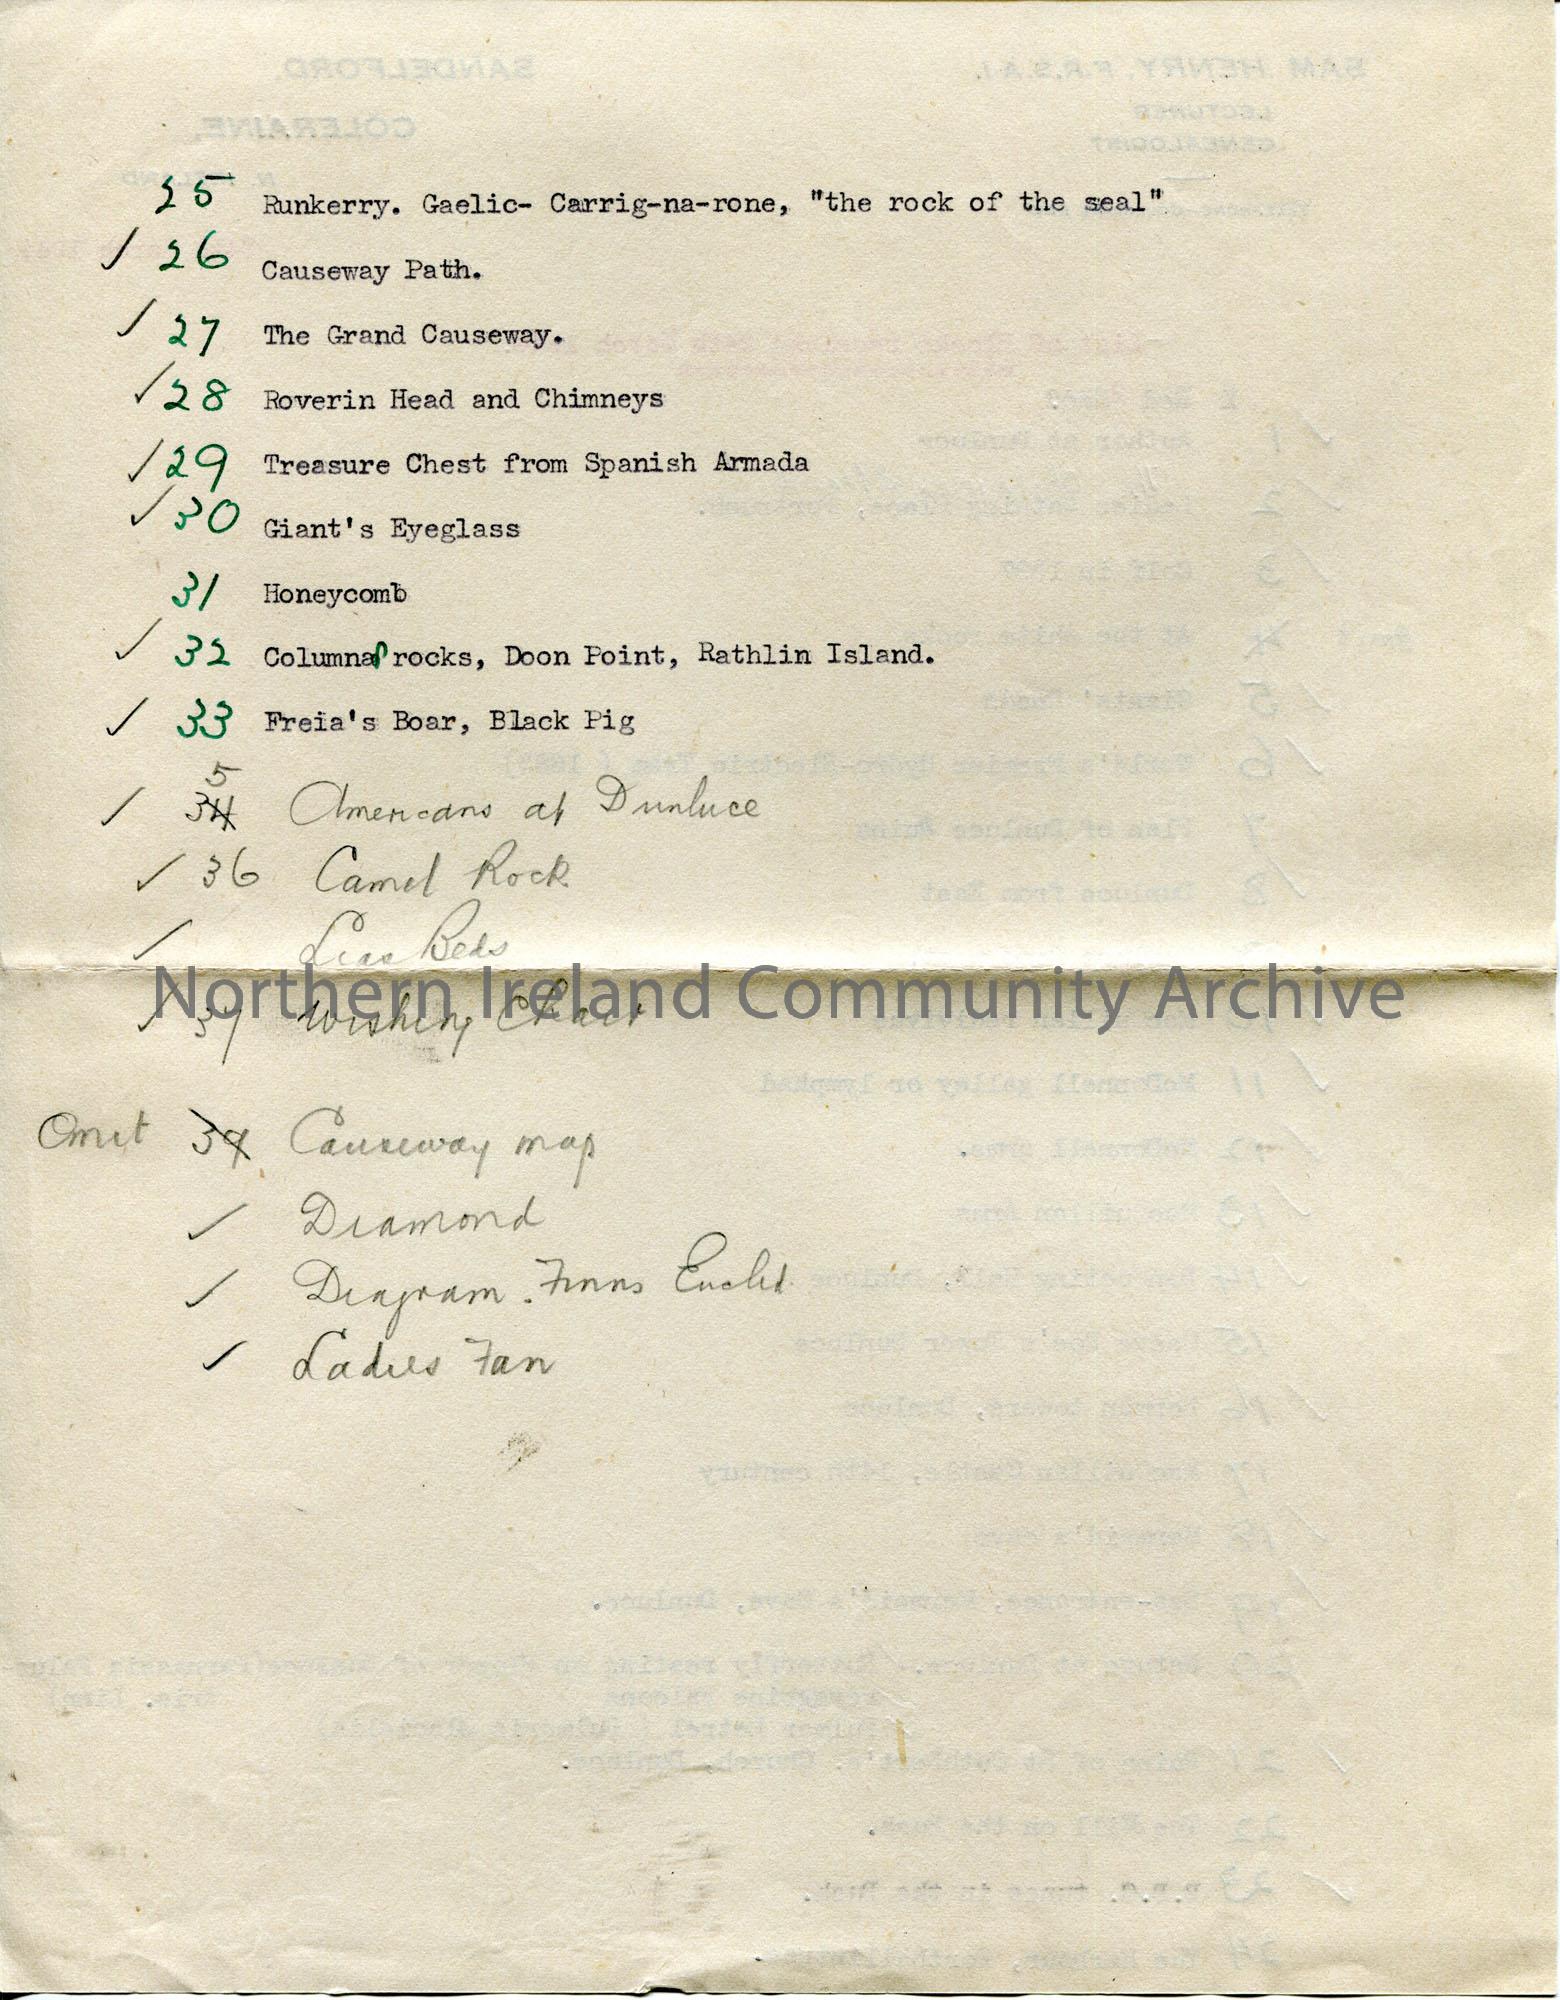 25 Runkerry. Gaelic- Carrig-na-rone, "the rock of the seal"
✓ 26 Causeway Path.
✓ 27 The Grand Causeway.
✓ 28 Roverin Head and Chimneys
✓ 29 Treasure Chest from Spanish Armada
✓ 30 Giant's Eyeglass
31 Honeycomb
✓ 32 Columnar rocks, Doon Point, Rathlin Island.
✓ 33 Freia's Boar, Black Pig
5
✓ 34 Americans at Dunluce
✓ 36 Camel Rock
✓ Lias Beds
Northern Ireland Community Archive
✓ 37 Wishing Chair
Omit 34 Causeway map
✓ Diamond
✓ Diagram. Finns Euclid
✓ Ladies Fan